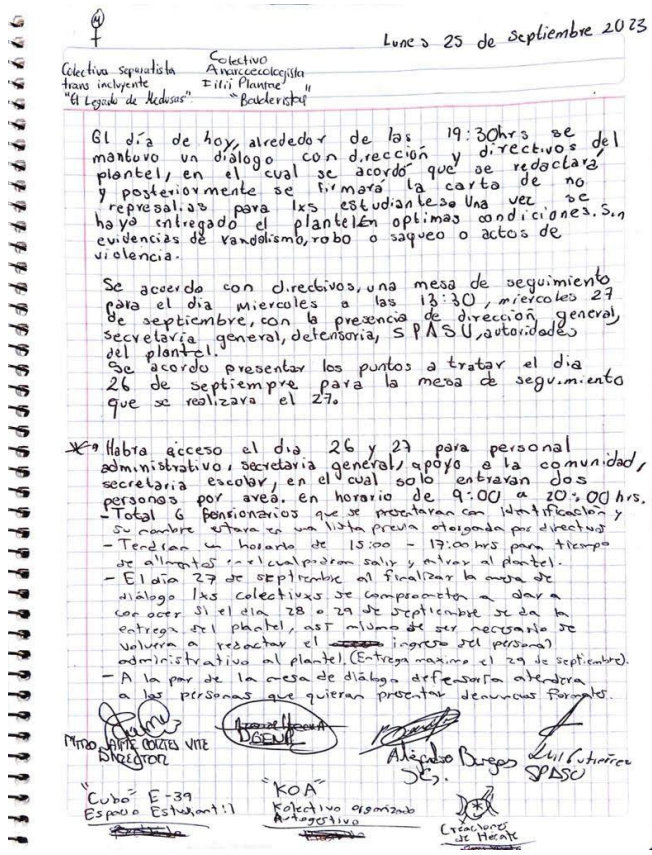 Lunes 25 de septiembre 2023
Colectiva separatista
trans incluyente
"El Legado de Medusas"
Colectivo
Anarcoecologista
Filii Plantae
"Balderistas"
El día de hoy, alrededor de las 19:30hrs se
mantuvo un diálogo con dirección y directivos del
plantel, en el cual se acordó que se redactará
y posteriormente se firmará la carta de no
represalias para lxs estudiantes. Una vez se
haya entregado el plantel en optimas condiciones. Sin
evidencias de vandalismo, robo o saqueo o actos de
violencia.
Se acuerda con directivos, una mesa de seguimiento
para el dia miercoles a las 13:30, miercoles 27
de septiembre, con la presencia de dirección general,
secretaria general, defensoria, SPASU, autoridades
del plantel.
Se acordo presentar los puntos a tratar el dia
26 de septiempre para la mesa de seguimiento
que se realizara el 27.
Habra acceso el dia 26 y 27 para personal
administrativo, secretaria general, apoyo a la comunidad,
secretaria escolar, en el cual solo entraran dos
personas por area. en horario de 9:00 a 20:00 hrs.
- Total 6 pensionarios que se presentaran con identificación y
su nombre estara en una lista previa otorgada por directivos
- Tendran un horario de 15:00 - 17:00 hrs para tiempo
de alimentos en el cual podran salir y entrar al plantel.
- El día 27 de septiembre al finalizar la mesa de
diálogo lxs colectivxs se comprometen a dar a
conocer si el dia 28 o 29 de septiembre se da la
entrega del plantel, así mismo de ser necesario se
volvera a redactar el ingreso del personal
administrativo al plantel. (Entrega maximo el 29 de septiembre).
- A la par de la mesa de diálogo defensoría atendera
a las personas que quieran presentar denuncias formales.
MTRO JAIME CORTES VITE
DIRECTOR
DGENP
Alejandro Burgos
Luis Gutiérrez
SPASU
"Cubo" E-39
Espacio Estudiantil
"KOA"
Kolectivo organizado
Autogestivo
Creaciones
de Hécate